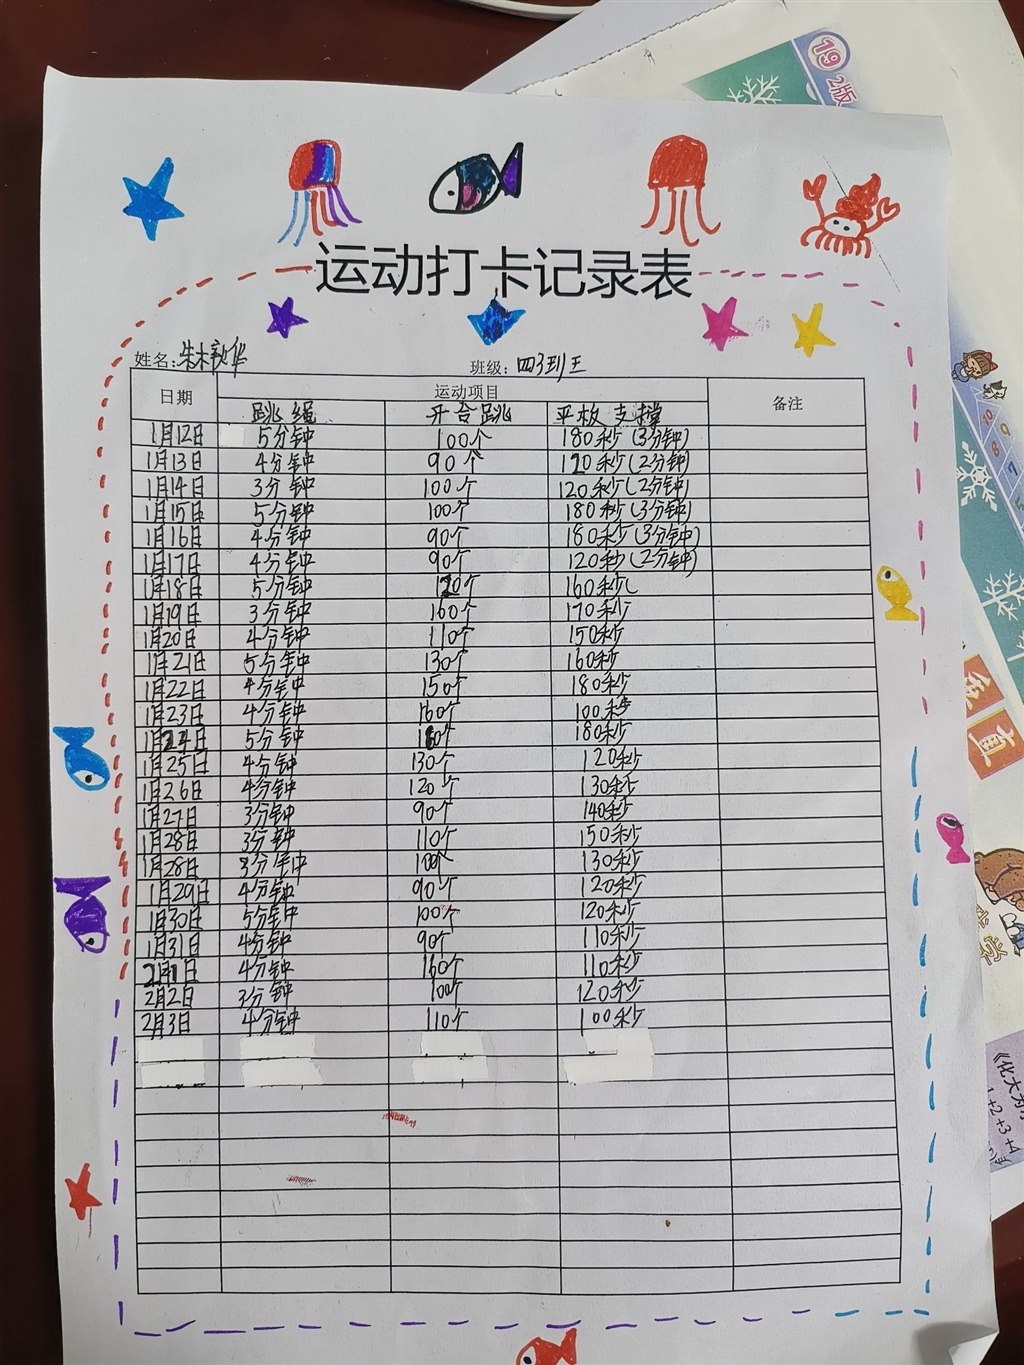 19 2版
运动打卡记录表
姓名: 班级: 四3班
日期 运动项目 备注
跳绳 开合跳 平板支撑
1月12日 5分钟 100个 180秒(3分钟)
1月13日 4分钟 90个 120秒(2分钟)
1月14日 3分钟 100个 120秒(2分钟)
1月15日 5分钟 100个 180秒(3分钟)
1月16日 4分钟 90个 180秒(3分钟)
1月17日 4分钟 90个 120秒(2分钟)
1月18日 5分钟 120个 160秒(
1月19日 3分钟 160个 170秒
1月20日 4分钟 110个 150秒
1月21日 5分钟 130个 160秒
1月22日 4分钟 150个 180秒
1月23日 4分钟 160个 100秒
1月24日 5分钟 180秒
1月25日 4分钟 130个 120秒
1月26日 4分钟 120个 130秒
1月27日 3分钟 90个 140秒
1月28日 3分钟 110个 150秒
1月28日 3分钟 100个 130秒
1月29日 4分钟 90个 120秒
1月30日 5分钟 100个 120秒
1月31日 4分钟 90个 110秒
2月1日 4分钟 160个 110秒
2月2日 3分钟 100个 120秒
2月3日 4分钟 110个 100秒
直
《化大为
1+2+3+4